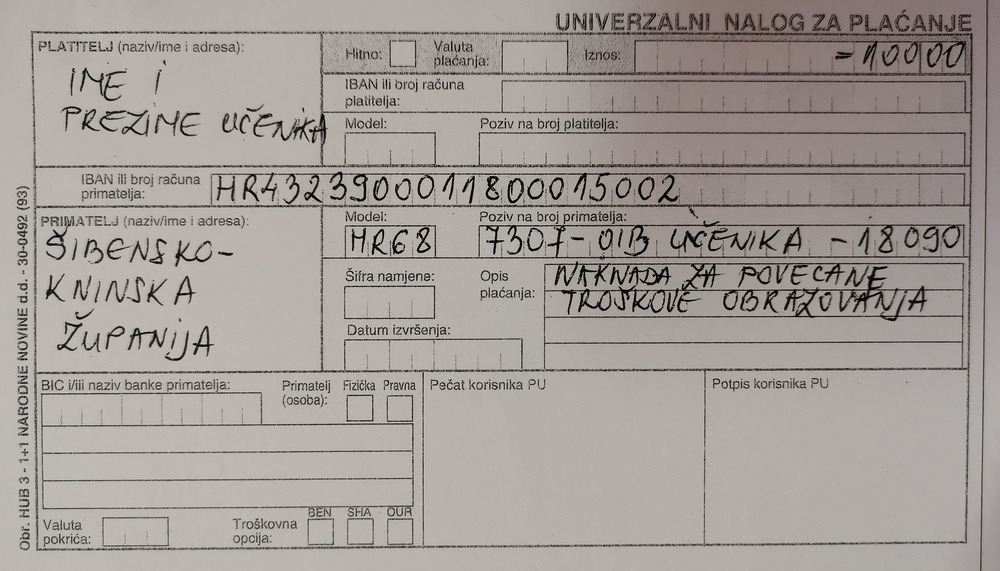 UNIVERZALNI NALOG ZA PLAĆANJE
PLATITELJ (naziv/ime i adresa):
IME I
PREZIME UČENIKA
Hitno:
Valuta plaćanja:
Iznos:
=10000
IBAN ili broj računa platitelja:
Model:
Poziv na broj platitelja:
IBAN ili broj računa primatelja:
HR4323900011800015002
PRIMATELJ (naziv/ime i adresa):
ŠIBENSKO-
KNINSKA
ŽUPANIJA
Model:
HR68
Poziv na broj primatelja:
7307-OIB UČENIKA -18090
Šifra namjene:
Opis plaćanja:
NAKNADA ZA POVEĆANE
TROŠKOVE OBRAZOVANJA
Datum izvršenja:
BIC i/ili naziv banke primatelja:
Primatelj (osoba):
Fizička
Pravna
Pečat korisnika PU
Potpis korisnika PU
Valuta pokrića:
Troškovna opcija:
BEN
SHA
OUR
Obr. HUB 3 - 1+1 NARODNE NOVINE d.d. - 30-0492 (93)